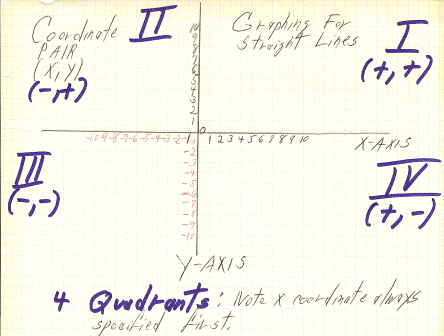 Coordinate
PAIR
(X, Y)
II
(-,+)
Graphing For
Straight Lines
I
(+, +)
10
9
8
7
6
5
4
3
2
1
0
-10-9-8-7-6-5-4-3-2-1
1 2 3 4 5 6 7 8 9 10
X-AXIS
-1
-2
-3
-4
-5
-6
-7
-8
-9
-10
III
(-,-)
IV
(+,-)
Y-AXIS
4 Quadrants: Note x coordinate always
specified first.